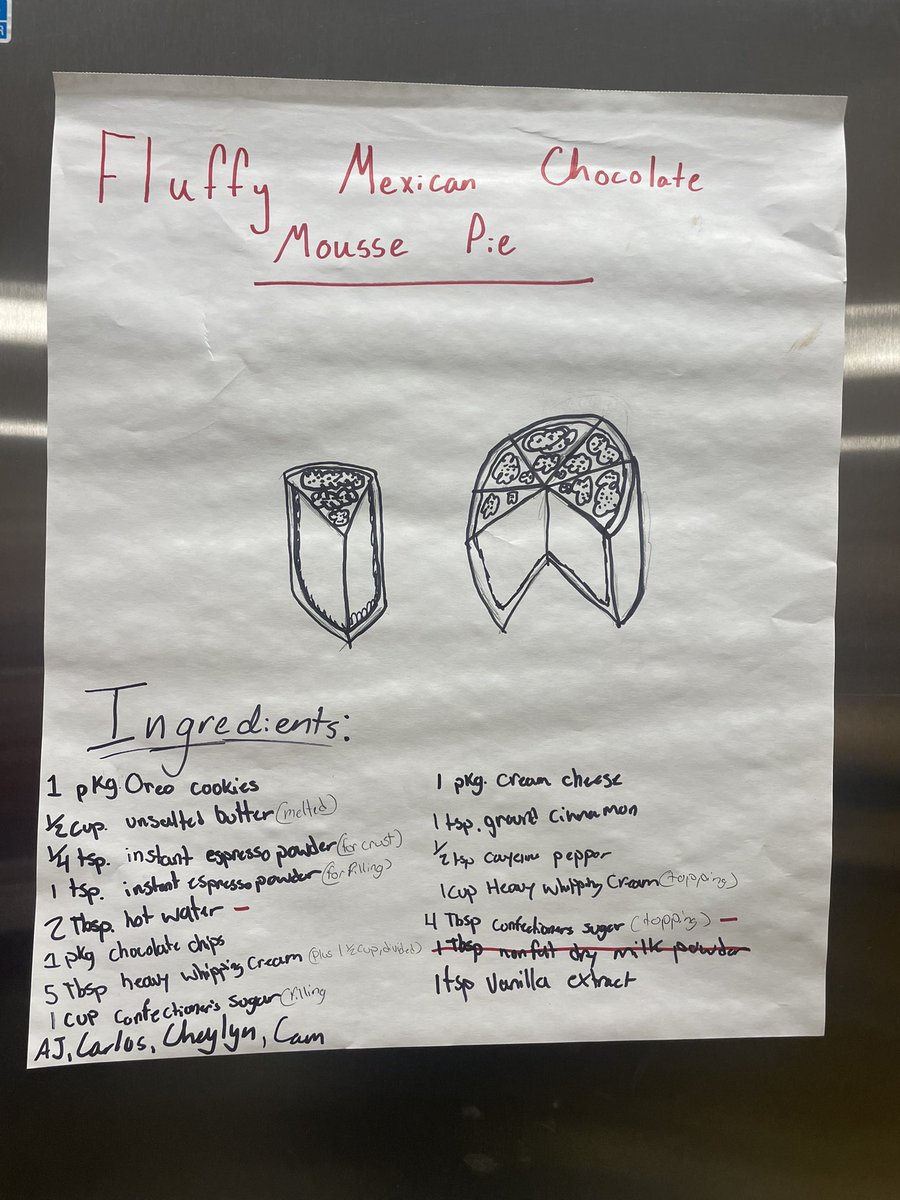 Fluffy Mexican Chocolate
Mousse Pie
Ingredients:
1 pkg. Oreo cookies
1/2 cup. unsalted butter (melted)
1/4 tsp. instant espresso powder (for crust)
1 tsp. instant espresso powder (for filling)
2 Tbsp. hot water -
1 pkg chocolate chips
5 Tbsp heavy whipping cream (plus 1 1/2 cup, divided)
1 cup confectioner's sugar (filling
AJ, Carlos, Cheylyn, Cam
1 pkg. cream cheese
1 tsp. ground cinnamon
1/2 tsp cayenne pepper
1 cup Heavy Whipping Cream (topping)
4 Tbsp confectioners sugar (topping) -
1 Tbsp nonfat dry milk powder
1 tsp Vanilla extract